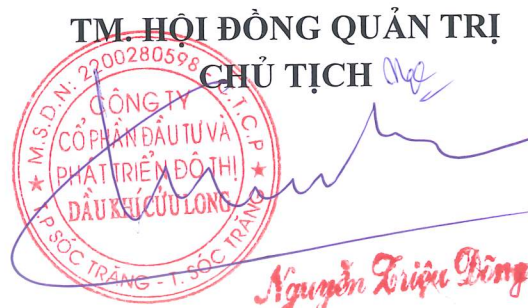 TM. HỘI ĐỒNG QUẢN TRỊ
CHỦ TỊCH
M.S.D.N: 2200280598 C.T.C.P
CÔNG TY
CỔ PHẦN ĐẦU TƯ VÀ
PHÁT TRIỂN ĐÔ THỊ
DẦU KHÍ CỬU LONG
T.P SÓC TRĂNG - T. SÓC TRĂNG
Nguyễn Triệu Dõng